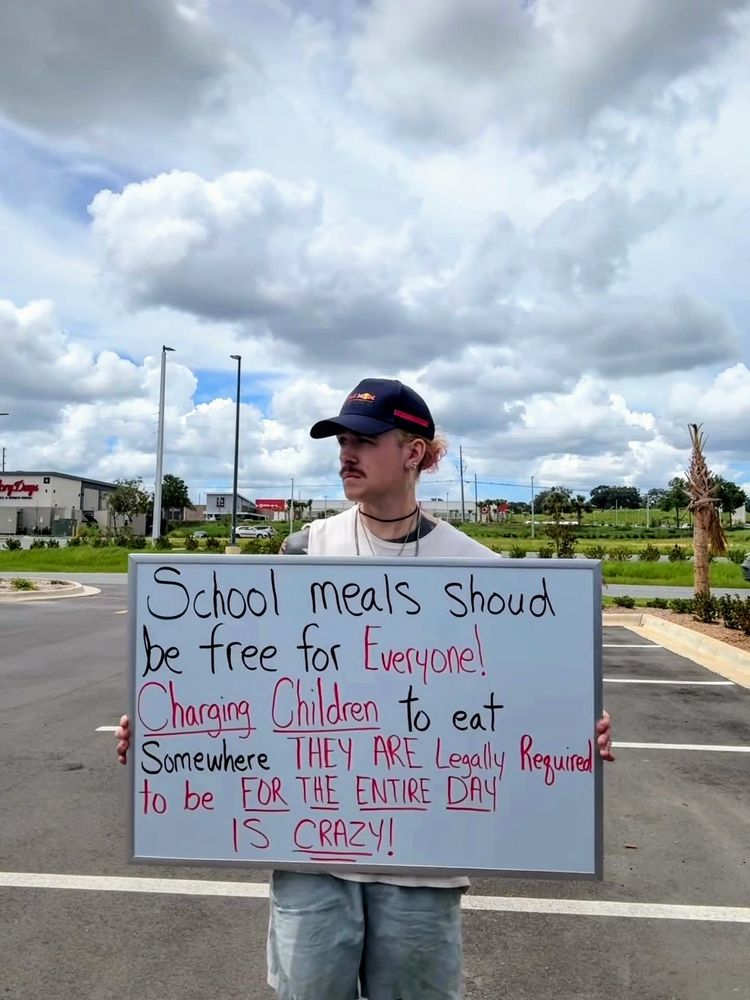 School meals shoud
be free for Everyone!
Charging Children to eat
Somewhere THEY ARE Legally Required
to be FOR THE ENTIRE DAY
IS CRAZY!